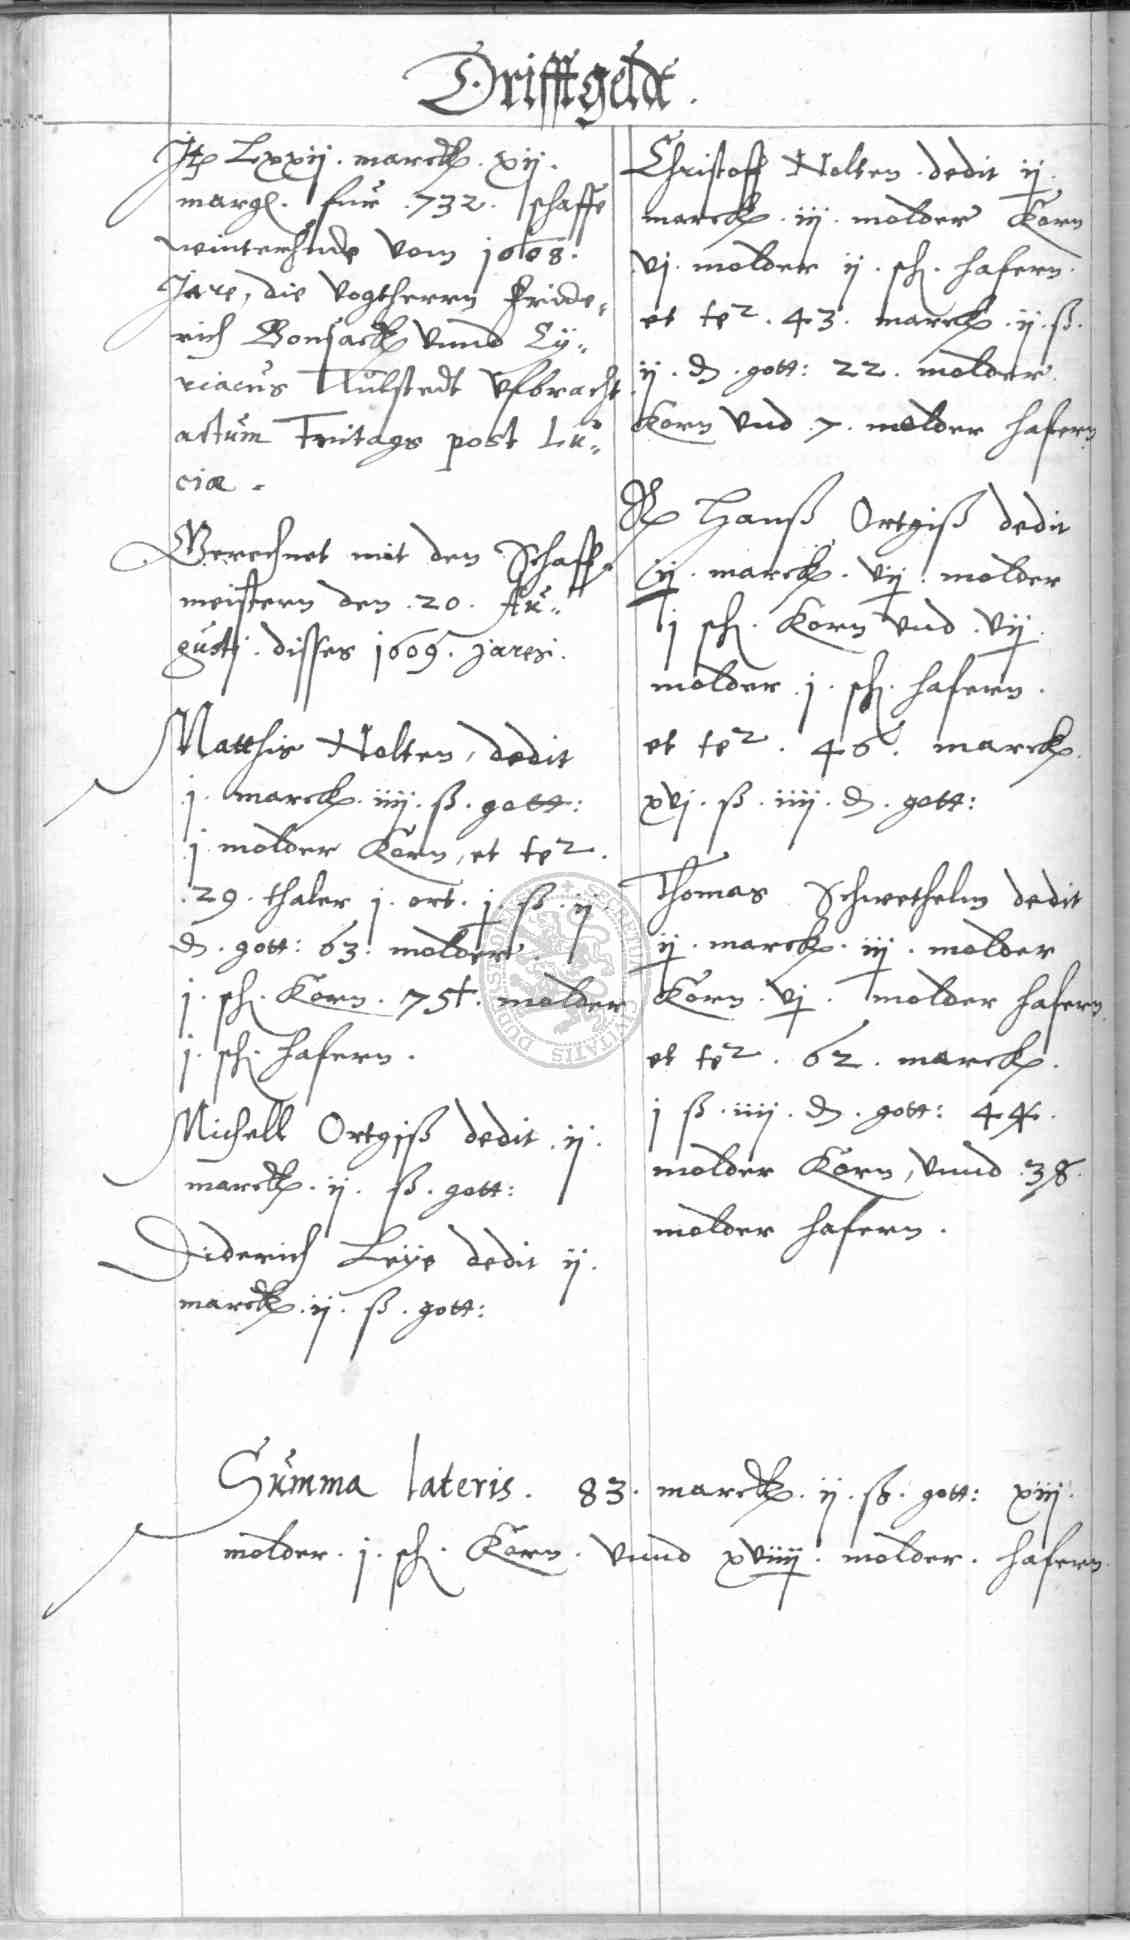 Drifftgeldt.
Itp Lxxij. marck. xij.
margl. für .732. schaffe
winterhude vom 1608.
Jare, die Vogtherrn Fride-
rich Bonsack vnnd Cy-
riacus Külstedt vfbracht
actum Freitags post Lu-
ciæ.
Berechnet mit den Schaff-
meistern den .20. Au-
gusti. disses 1609. jares.
Matthis Nolten, dedit
j. marck. iiij. ß. gott:
j molder Korn, et te2.
.29. thaler j. ort. j. ß. ij
d. gott: 63. molder.
j. sch. Korn. 75. molder
j. sch. hafern.
Michell Ortgiß dedit .ij.
marck. ij. ß. gott:
Diderich Leye dedit ij.
marck. ij. ß. gott:
Christoff Nolten dedit ij.
marck. iij. molder Korn
vj. molder ij. sch. hafern.
et te2. 43. marck. ij. ß.
ij. d. gott: 22. molder
Korn vnd .7. molder hafern
Hanß Ortgiß dedit
ij. marck. vij. molder
j sch. Korn vnd .vij.
molder .j. sch. hafern.
et te2. 46. marck.
xvj. ß. iiij. d. gott:
Thomas Schwethelm dedit
ij. marck. iij. molder
Korn. vj. molder hafern.
et te2. 62. marck.
j ß. iiij. d. gott: 44.
molder Korn, vnnd .38.
molder hafern.
Summa lateris. 83. marck. ij. ß. gott: xiij.
molder. j. sch. Korn. vnnd xviiij. molder. hafern.